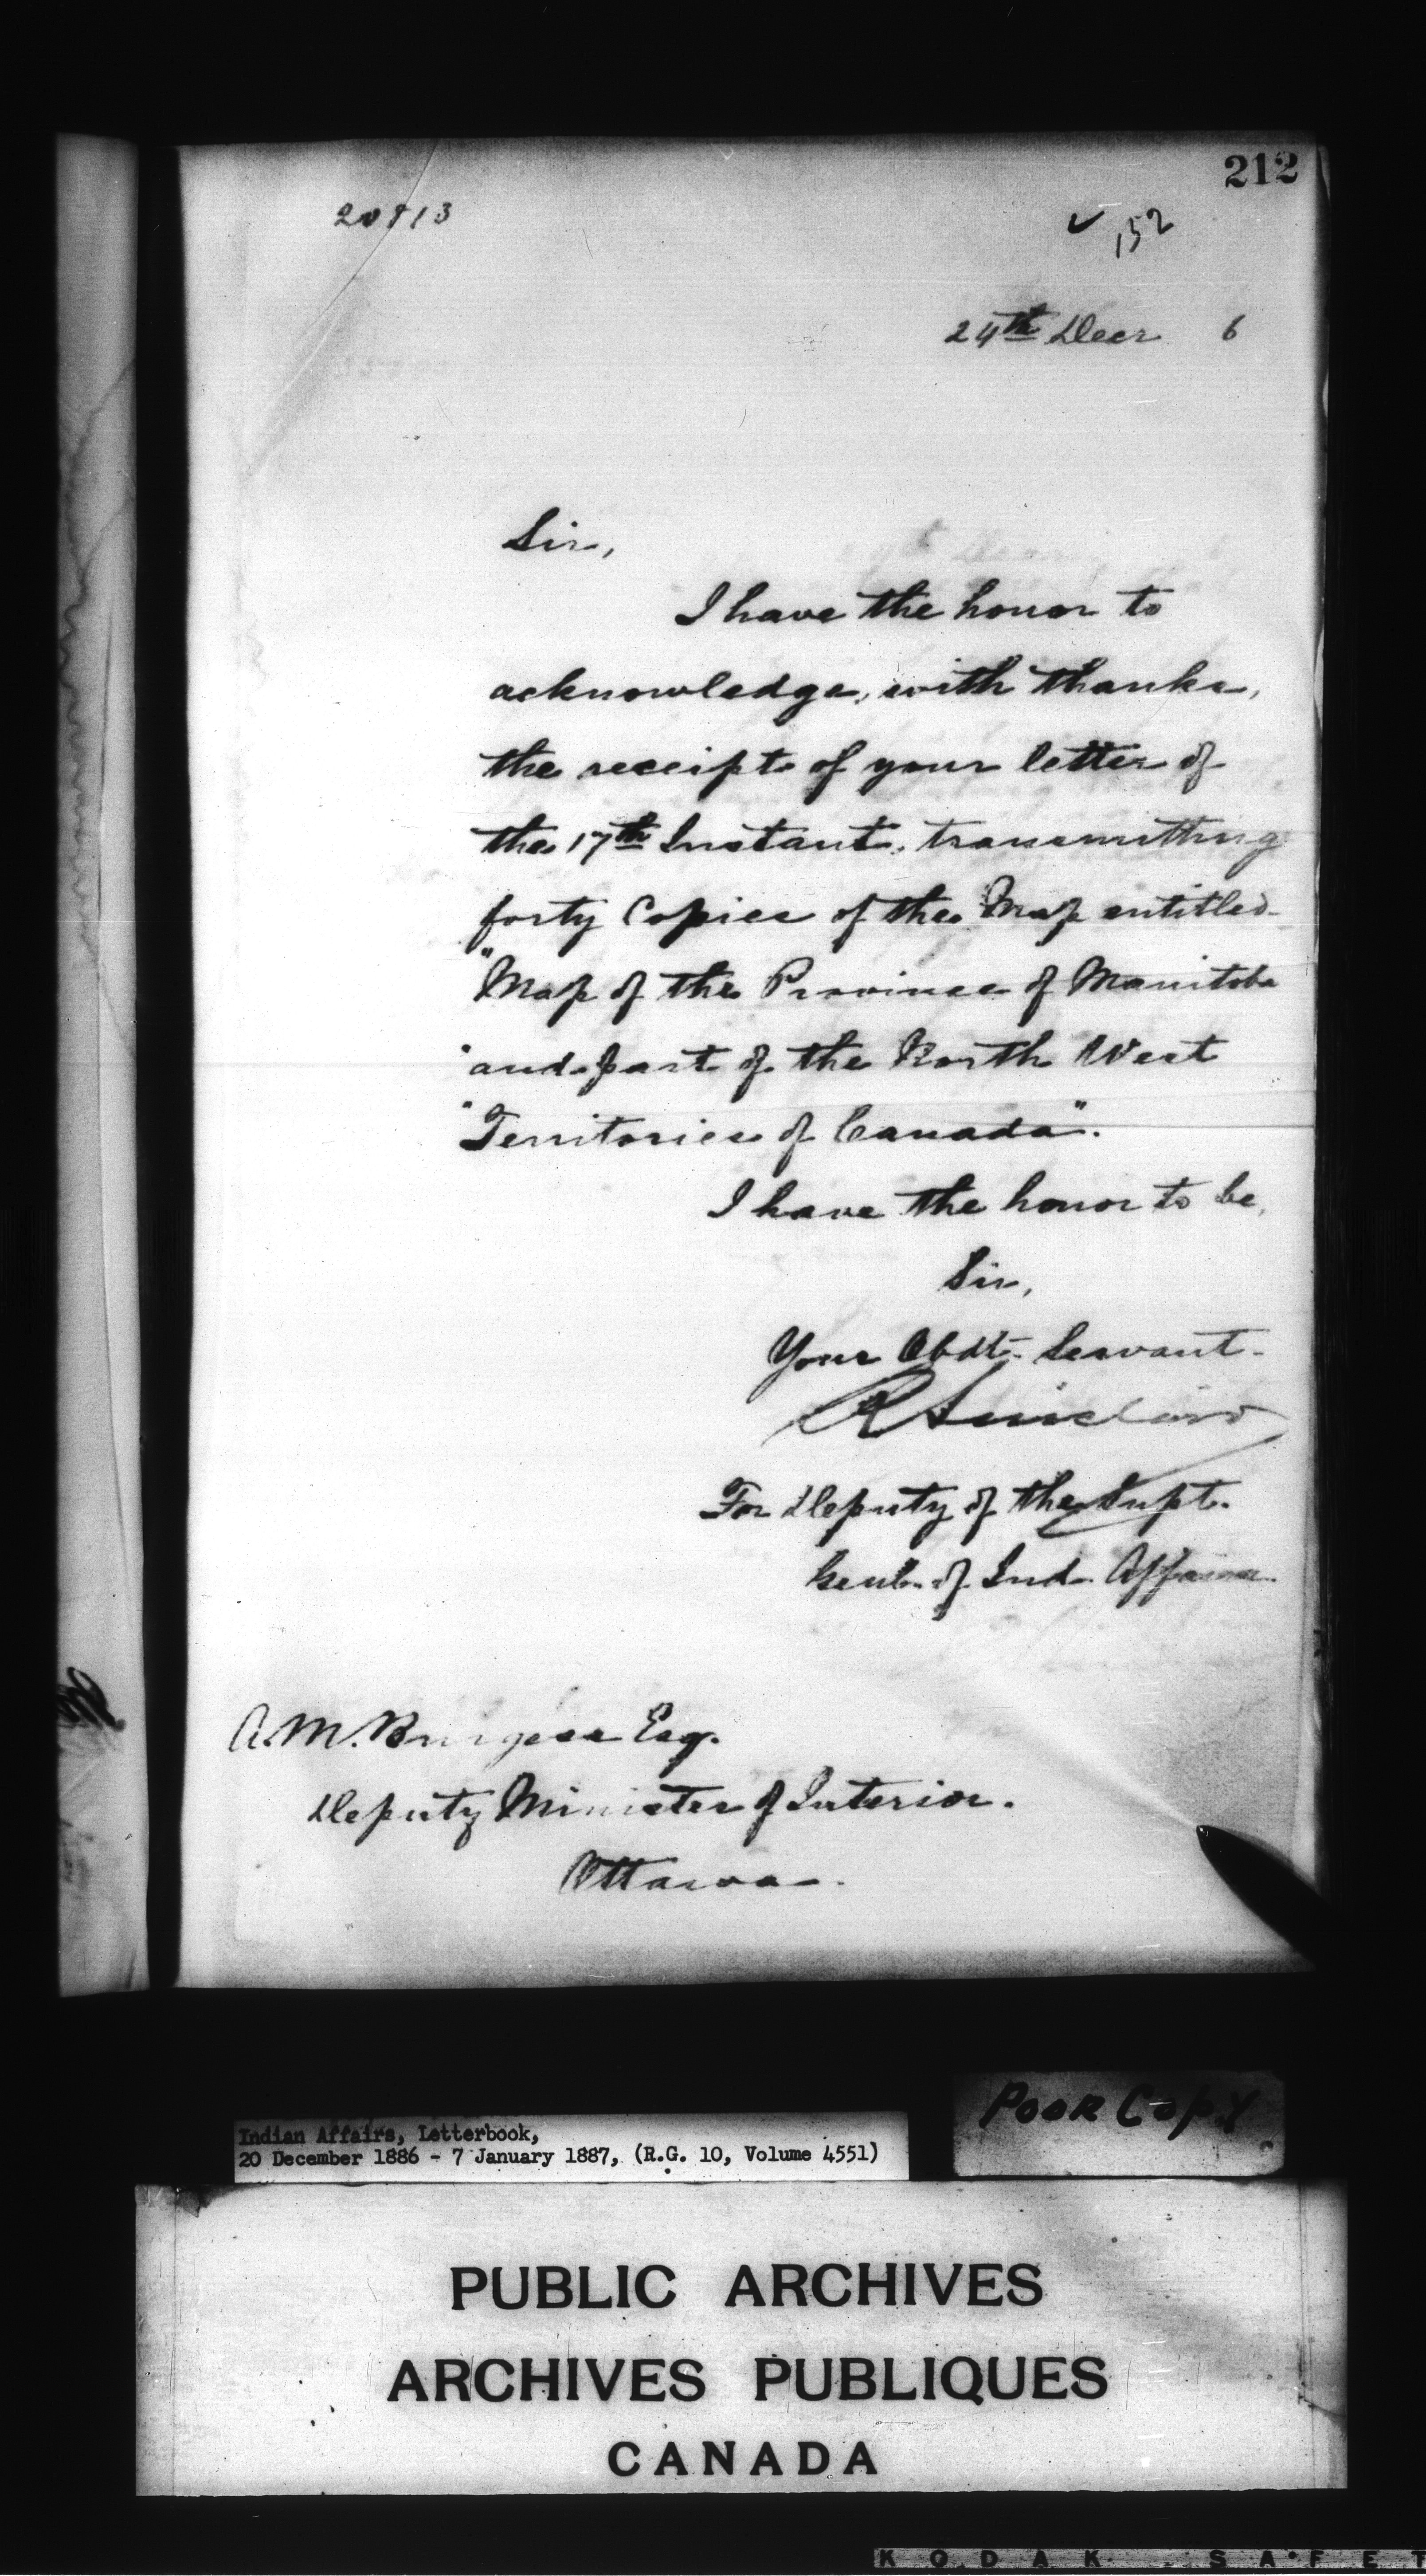 212
152
24th Decr 6
Sir,
I have the honor to
acknowledge, with thanks,
the receipt of your letter of
the 17th Instant, transmitting
forty Copies of the Map entitled
"Map of the Province of Manitoba
"and part of the North West
"Territories of Canada".
I have the honor to be,
Sir,
Your Obdt. Servant.
R Sinclair
For Deputy of the Supt.
Genl. of Ind. Affairs.
A. M. Burgess Esq.
Deputy Minister of Interior.
Ottawa.
POOR COPY
Indian Affairs, Letterbook,
20 December 1886 - 7 January 1887, (R.G. 10, Volume 4551)
PUBLIC ARCHIVES
ARCHIVES PUBLIQUES
CANADA
KODAK SAFET